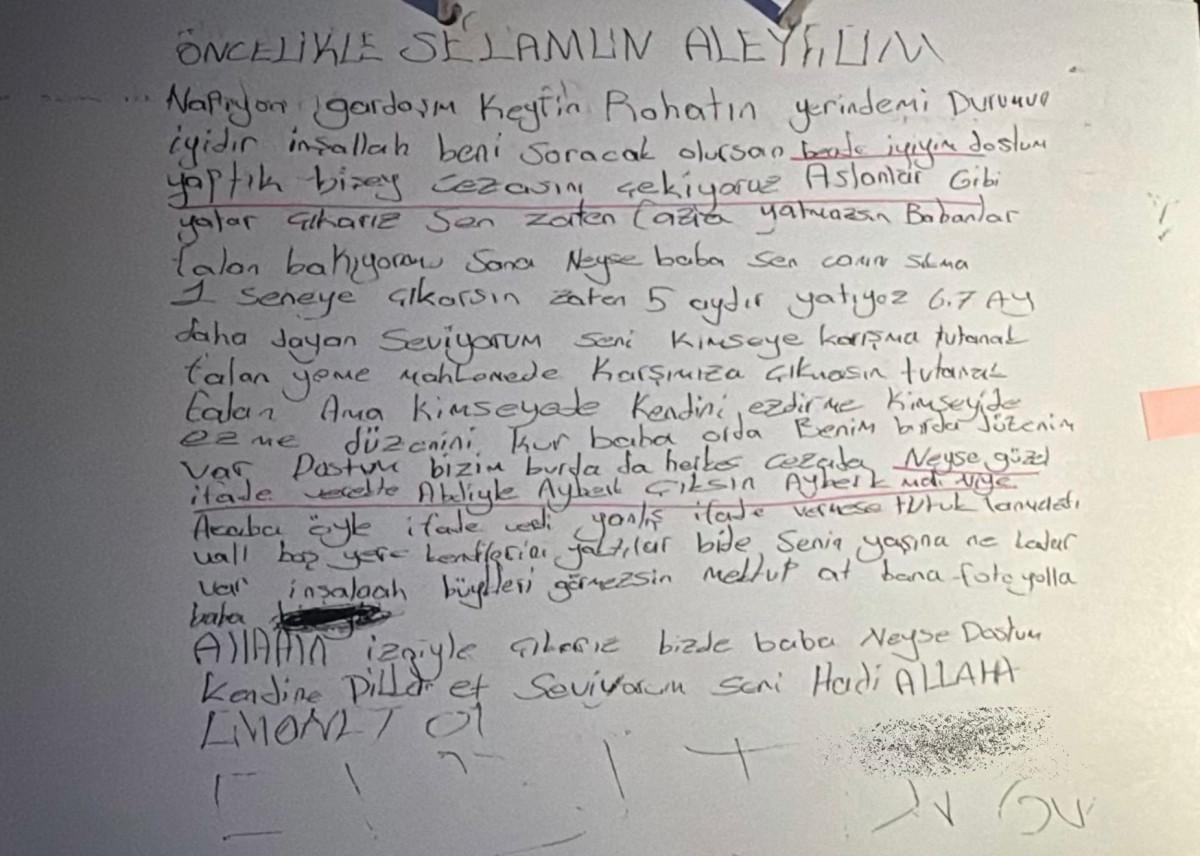 ÖNCELİKLE SELAMUN ALEYKUM
Napıyon gardaşım Keyfin Rahatın yerindemi Durumun
iyidir inşallah beni soracak olursan bende iyiyim dostum
yaptık bizşey cezasını çekiyoruz Aslanlar Gibi
yatar çıkarız Sen zaten fazla yatmazsın Babanlar
falan bakıyorau Sana Neyse baba sen canın sıkma
1 seneye çıkarsın zaten 5 aydır yatıyoz 6.7 AY
daha dayan Seviyorum seni Kimseye karışma tutanak
falan yeme mahkemede karşımıza çıkmasın tutanak
falan Ama kimseyede kendini ezdirme kimseyide
ezme düzenini kur baba orda Benim burda düzenim
var Dostum bizim burda da herkes cezada Neyse güzel
ifade verelle Abiliyle Ayberk çıksın Ayberk niye
Acaba öyle ifade verdi yanlış ifade vermese tutuklanmazdı
vall boş yere kendilerini yaktılar bide Senin yaşına ne kadar
var inşalaah büyükleri görmezsin mektup at bana foto yolla
baba
Allahın izniyle çıkarız bizde baba Neyse Dostum
kendine Dikkat et Seviyorum seni Hadi ALLAHA
EMANET Ol